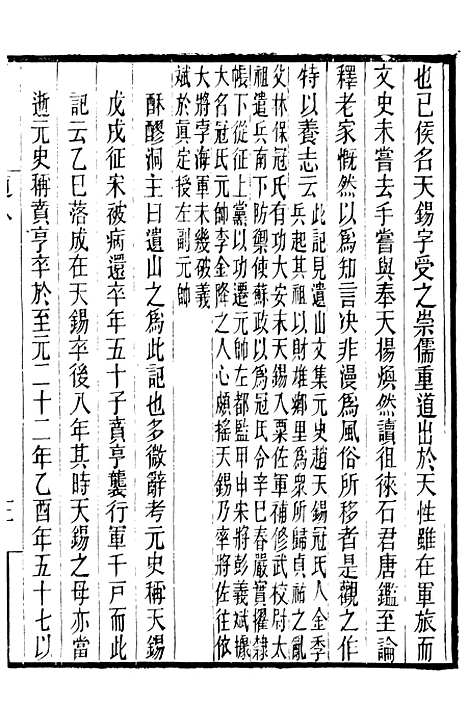 也已侯名天錫字受之崇儒重道出於天性雖在軍旅而
文史未嘗去手嘗與奉天楊煥然讀徂徠石君唐鑑至論
釋老家慨然以為知言決非漫為風俗所移者是觀之作
特以養志云
此記見遺山文集元史趙天錫冠氏人金季
兵起其祖以財雄鄉里為眾所歸貞祐之亂
父林保冠氏有功大安末天錫入粟佐軍補修武校尉太
祖遣兵南下防禦使蘇政以為冠氏令辛巳春嚴實擢隸
帳下從征上黨以功遷元帥左都監甲申宋將彭義斌據
大名冠氏元帥李金降之人心頗搖天錫乃率將佐往依
大將孛海軍未幾破義
斌於真定後左副元帥
酥醪洞主曰遺山之為此記也多微辭考元史稱天錫
戊戌征宋被病還卒年五十子賁亨襲行軍千戶而此
記云乙巳落成在天錫卒後八年其時天錫之母亦當
逝元史稱賁亨卒於至元二十二年乙酉年五十七以